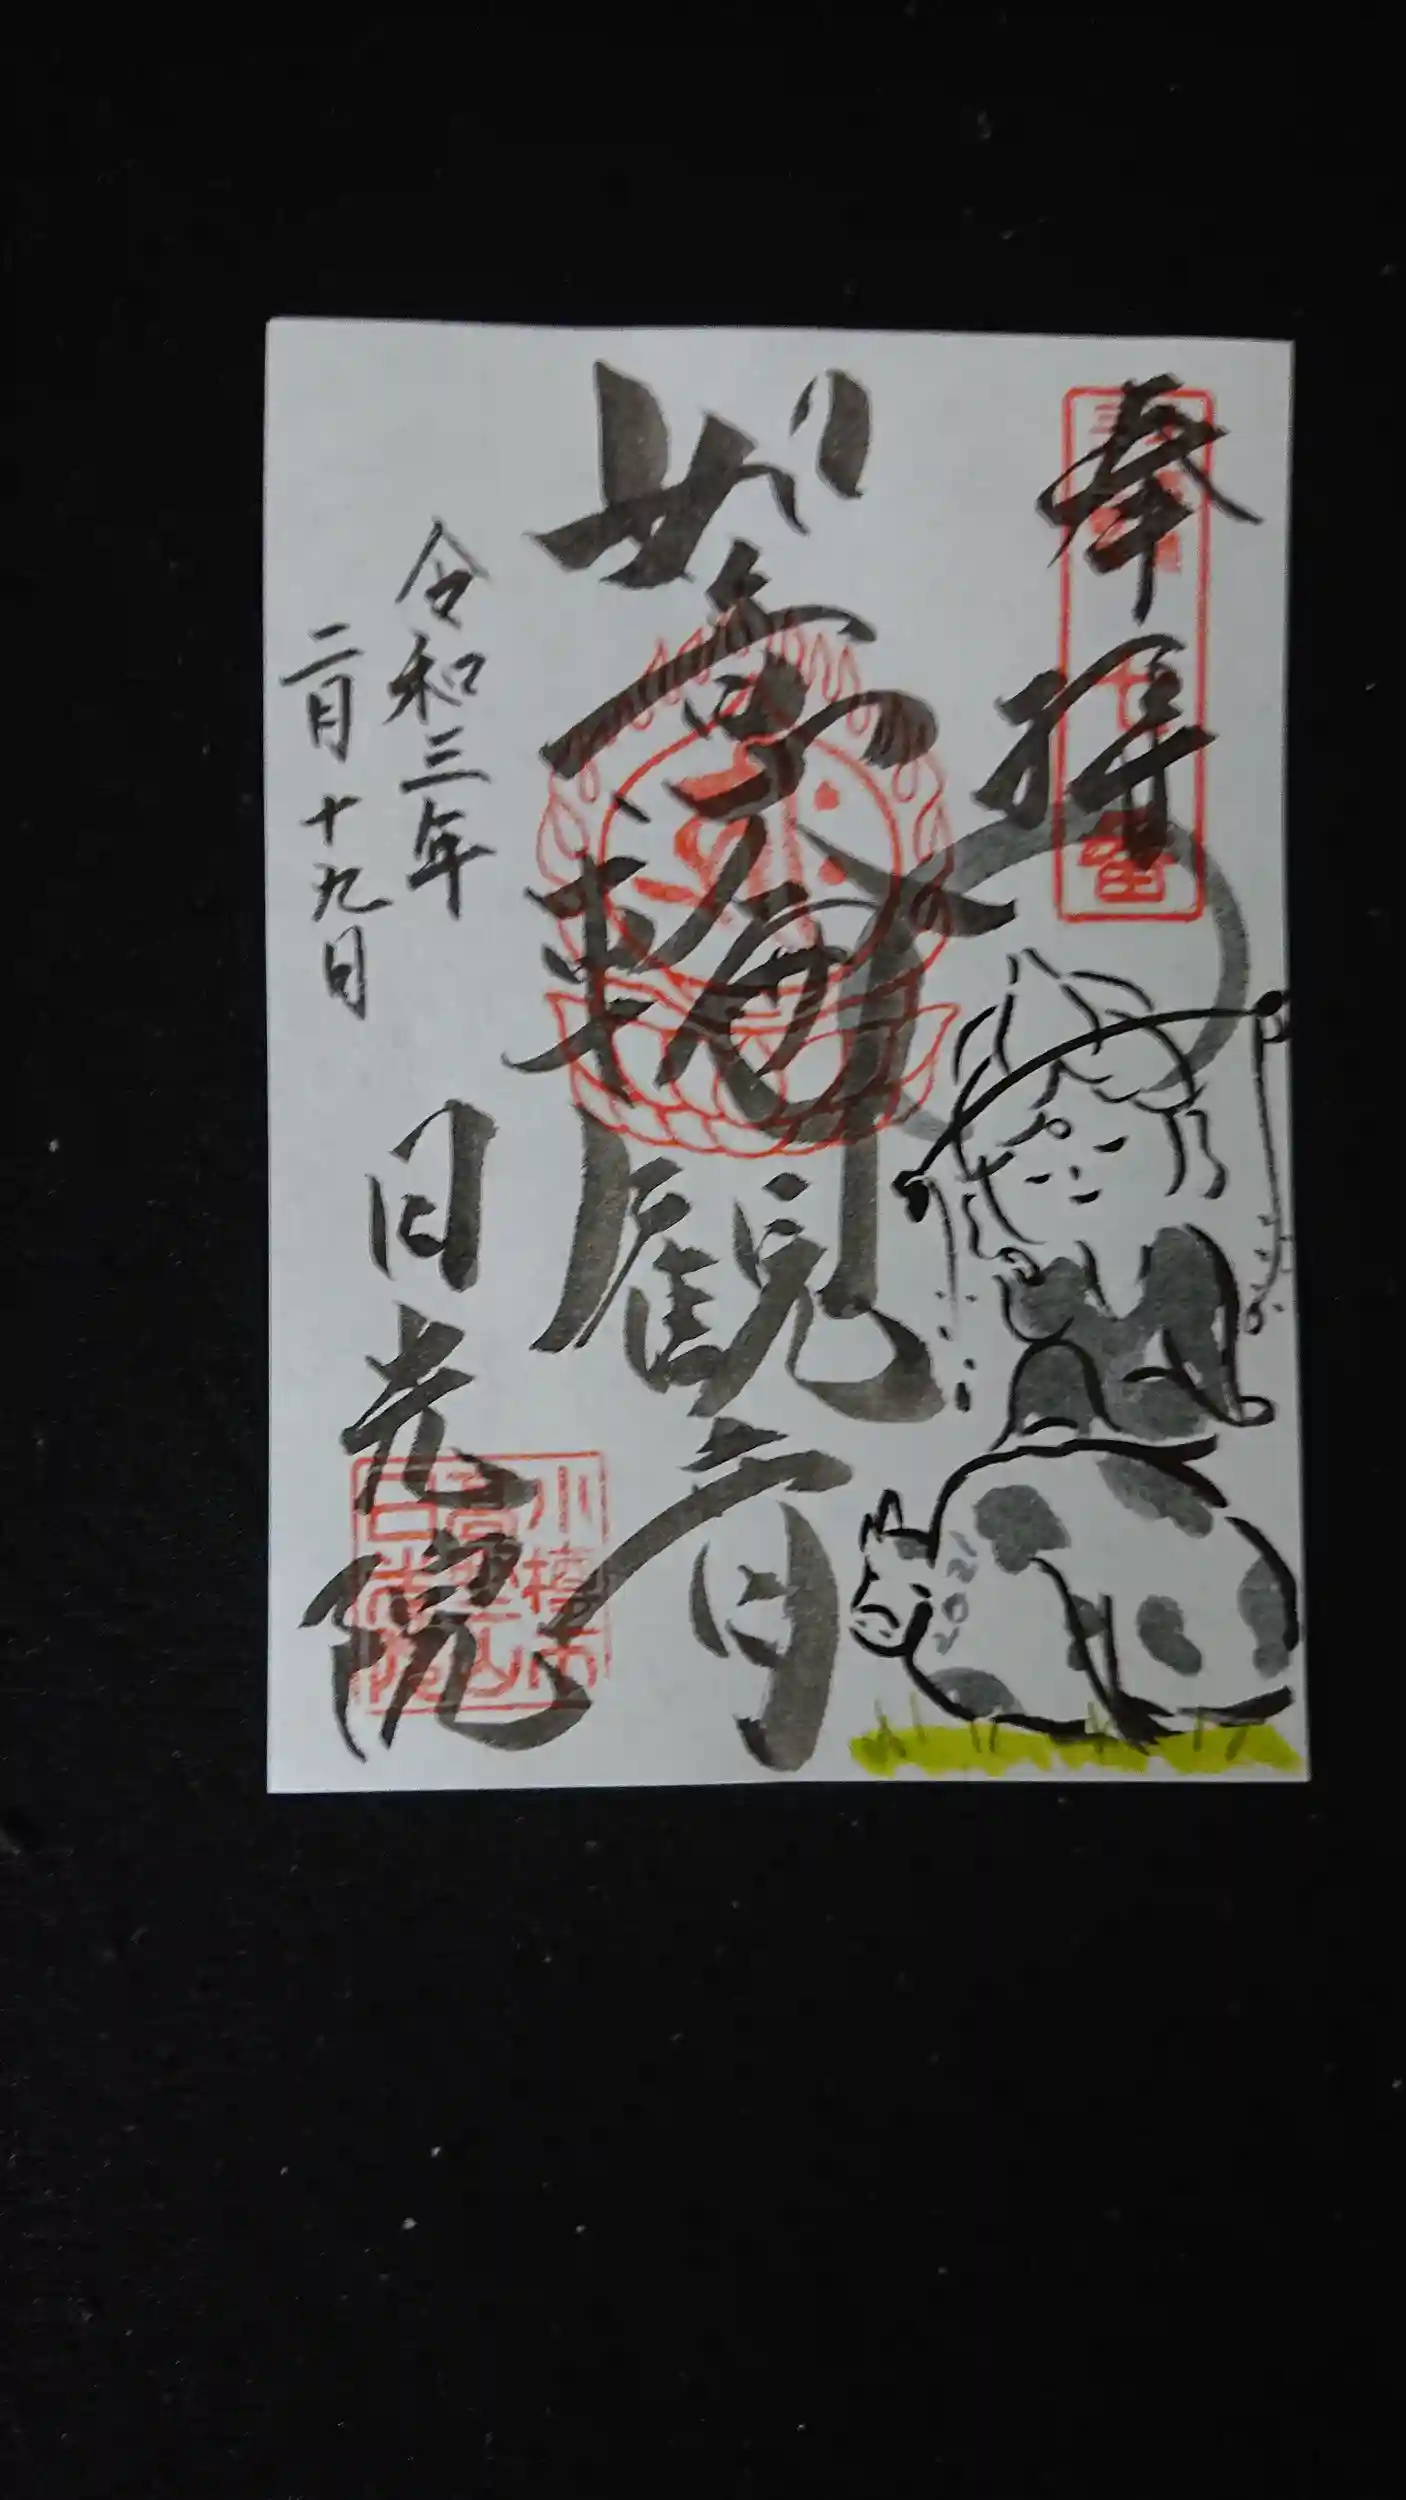 奉拝
如意輪観音
令和三年
二月十九日
日光院
小樽市
高野山
日光院
2021